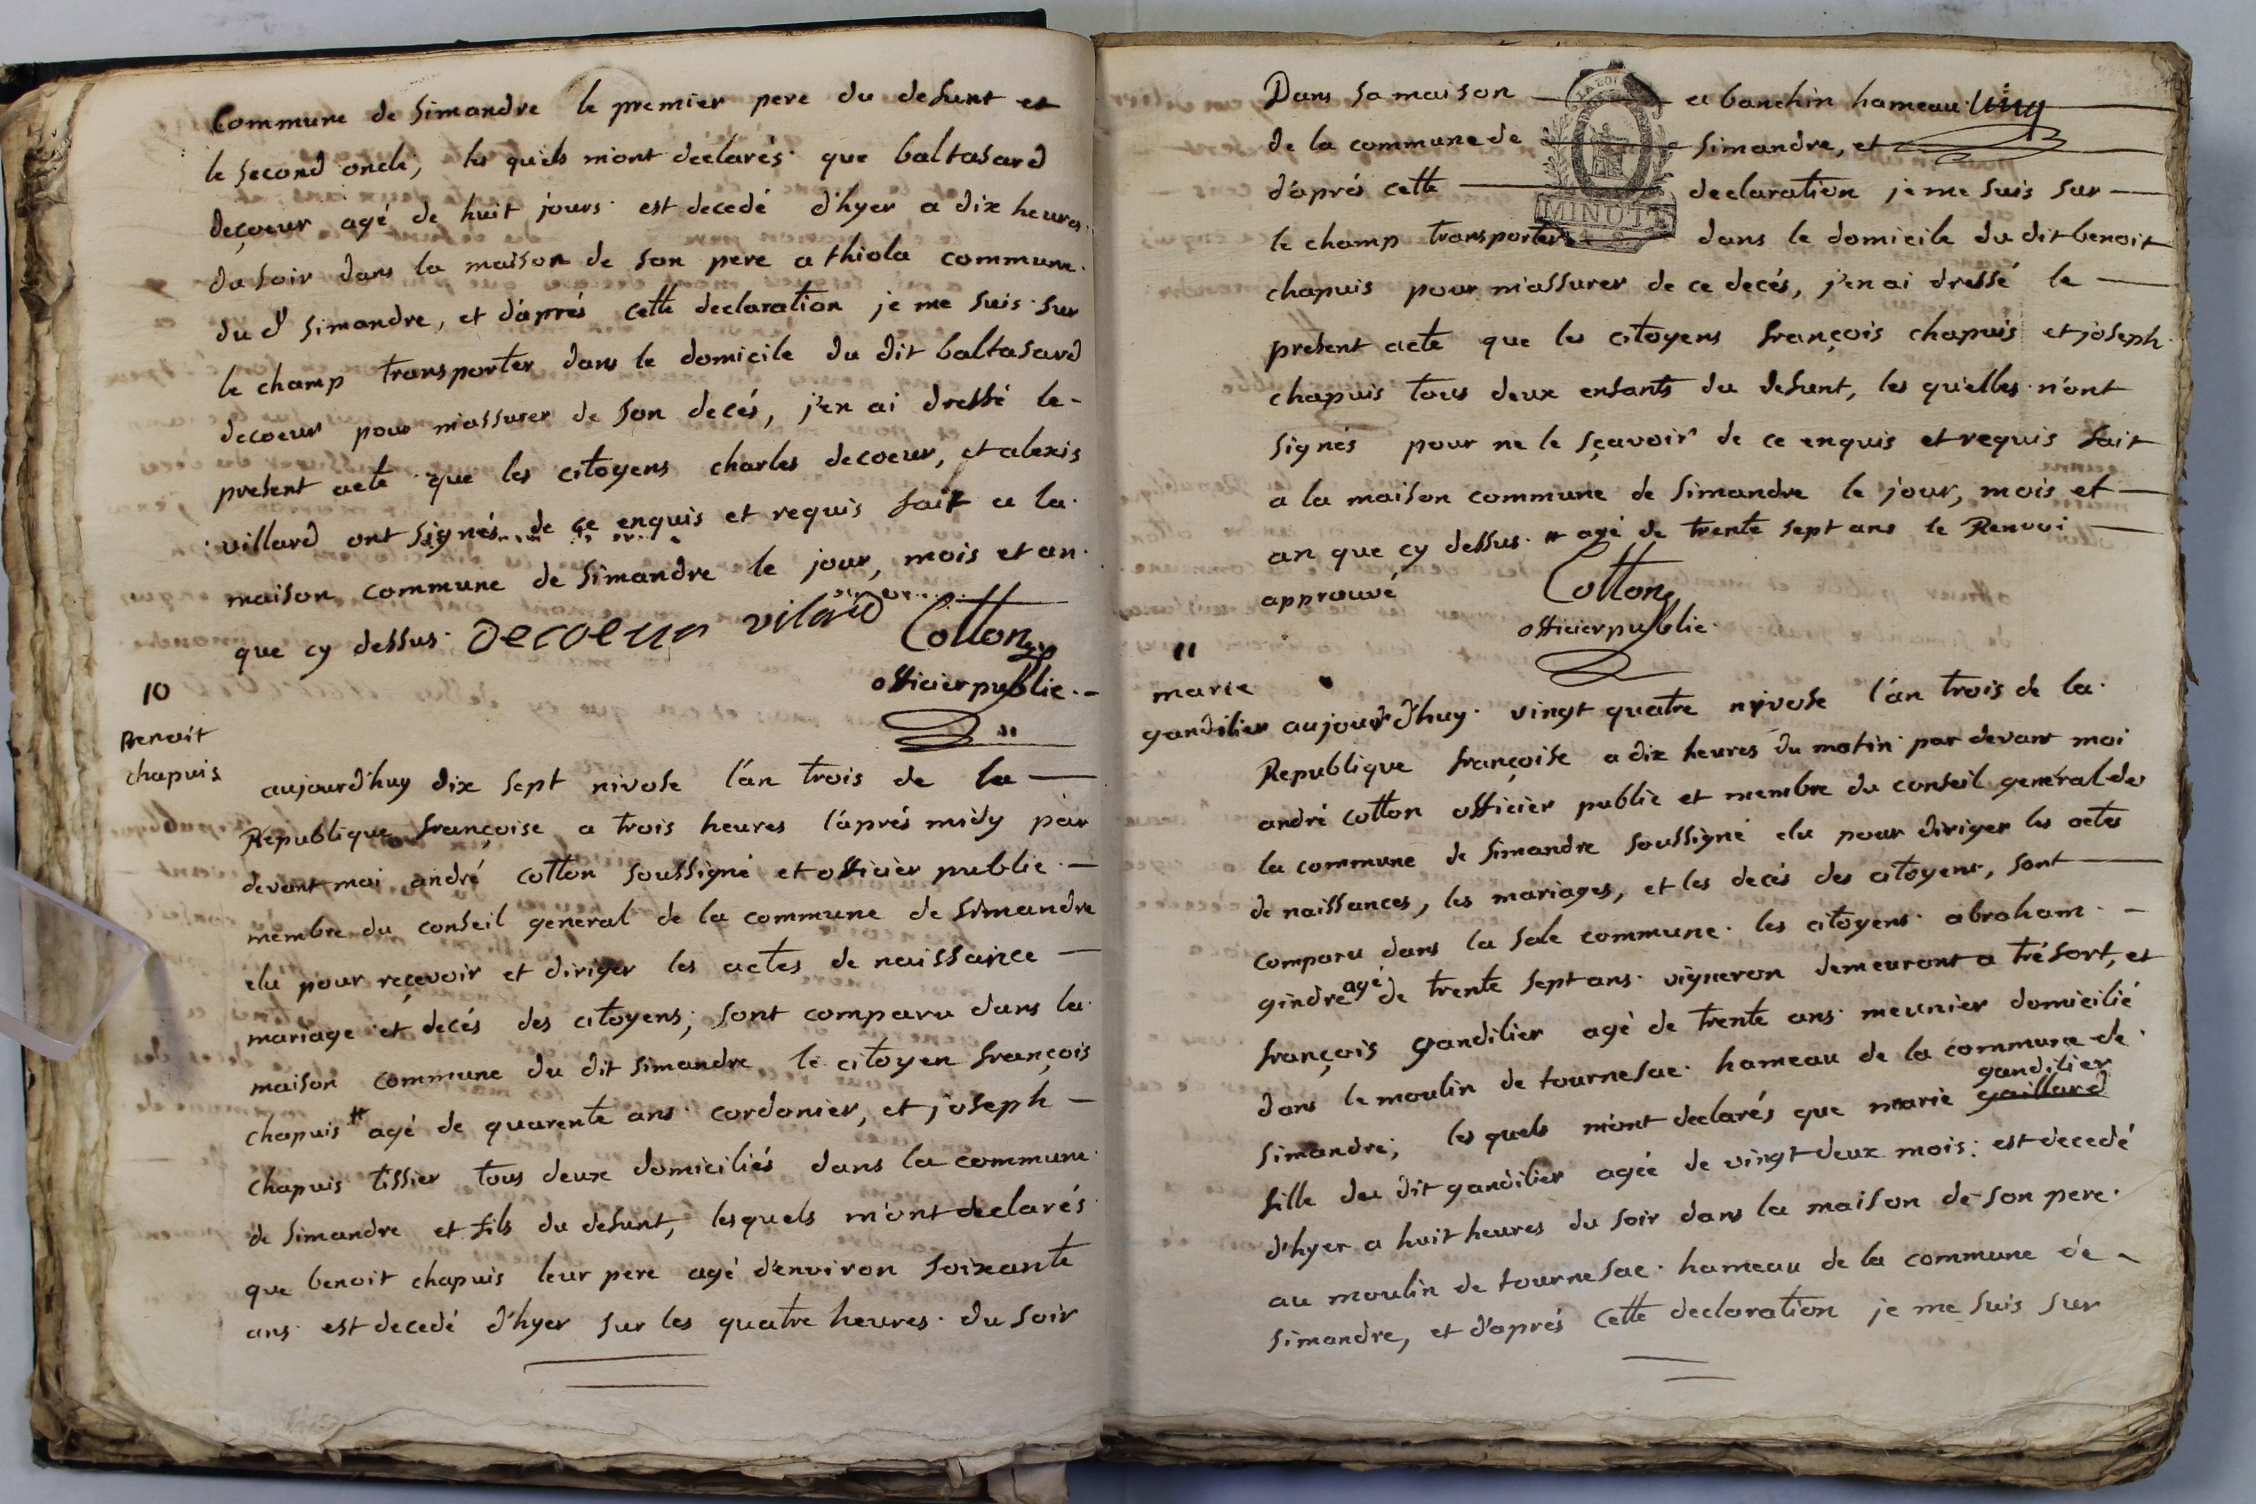 Commune de Simandre le premier pere du defunt et
le second oncle, les quels m'ont déclarés que baltasard
deçoeur agé de huit jours est decedé d'hyer a dix heures
du soir dans la maison de son pere a thiola commune
du d' Simandre, et d'aprés cette declaration je me suis sur
le champ transporter dans le domicile du dit baltasard
decoeur pour m'assurer de son decés, j'en ai dressé le -
present acte que les citoyens charles decoeur, et alexis
villard ont signés de ce enquis et requis fait a la
maison commune de Simandre le jour, mois et an
que cy dessus. Decoeur vilard Cotton
officier public
10
Benoit
chapuis
aujourd'huy dix sept nivose l'an trois de la
Republique françoise a trois heures l'aprés midy par
devant moi andré cotton soussigné et officier public
membre du conseil general de la commune de Simandre
elu pour reçevoir et diriger les actes de naissance
mariage et decés des citoyens; sont comparu dans la
maison commune du dit simandre le citoyen françois
chapuis # agé de quarente ans cordonier, et joseph -
chapuis tissier tous deux domiciliés dans la commune
de simandre et fils du defunt, lesquels m'ont declarés
que benoit chapuis leur pere agé d'environ soixante
ans est decedé d'hyer sur les quatre heures du soir
Dans sa maison a banchin hameau
de la commune de simandre, et
d'aprés cette declaration je me suis sur
le champ transporter dans le domicile du dit benoit
chapuis pour m'assurer de ce decés, j'en ai dressé le
present acte que les citoyens françois chapuis et joseph
chapuis tous deux enfants du defunt, les qu'elles n'ont
signés pour ne le sçavoir de ce enquis et requis fait
a la maison commune de Simandre le jour, mois et
an que cy dessus. # agé de trente sept ans le Renvoi
approuvé Cotton
officier public
MINUTE
11
marie
gandilier
aujourd'huy vingt quatre nivose l'an trois de la
Republique françoise a dix heures du matin par devant moi
andré cotton officier public et membre du conseil general de
la commune de Simandre soussigné elu pour diriger les actes
de naissances, les mariages, et les decés des citoyens, sont
comparu dans la sale commune les citoyens abraham -
gindre agé de trente sept ans vigneron demeurant a trésort, et
françois gandilier agé de trente ans meunier domicilié
dans le moulin de tournesac hameau de la commune de
simandre; les quels m'ont declarés que marie gaillard gandilier
fille du dit gandilier agée de vingt deux mois est decedé
d'hyer a huit heures du soir dans la maison de son pere
au moulin de tournesac hameau de la commune de -
simandre, et d'aprés cette declaration je me suis sur